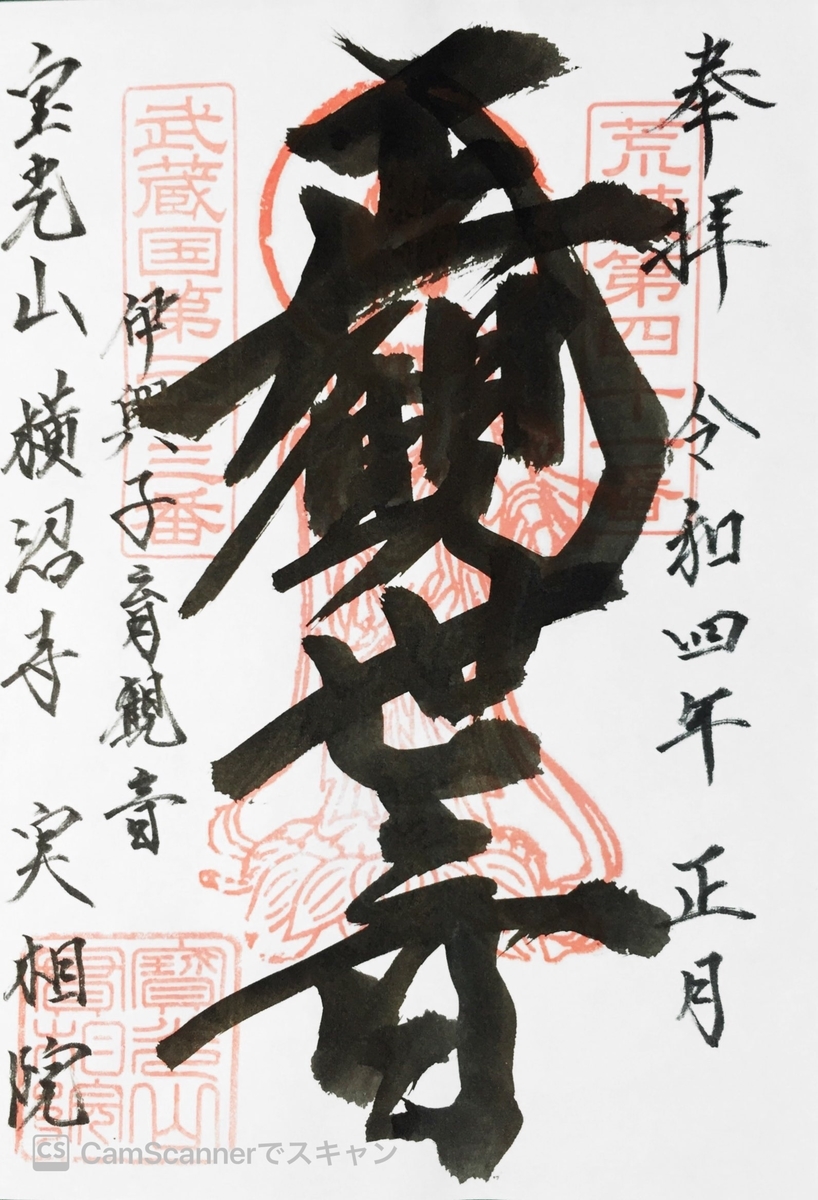 奉拝 令和四年 正月
第四十一番
観世音
武蔵国第三番
伊興子育観音
宝光山 横沼寺 実相院
寶光山
實相院
CS CamScannerでスキャン